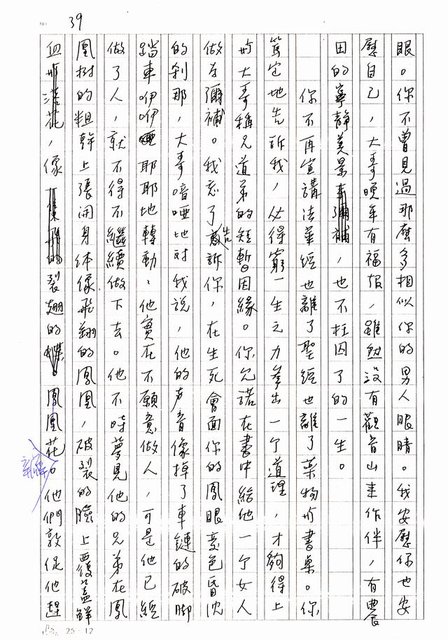 39
眼。你不曾見過那麼多相似你的男人眼睛。我安慰你也安
慰自己，大哥晚年有福報，雖然沒有觀音山來作伴，有農
田的寧靜美景，也不枉囚了的一生。
你不再宣講法華經也離了聖經也離了藥物所書桌。你
篤定地告訴我，必得窮一生之力養出一个道理，才夠得上
所大哥稱兄道弟的短暫因緣。你允諾在書中給他一个女人
做為彌補。我忘了告訴你，在生死會面你的鳳眼褪色昏沈
的剎那，大哥喑啞地對我說，他的声音像掉了車鏈的破脚
踏車咿咿耶耶地轉動。他實在不願意做人，可是他已經
做了人，就不得不繼續做下去。他不時夢見他的兄弟在鳳
凰樹的粗幹上張開身体像飛翔的鳳凰，破裂的臉上覆蓋鮮
血所落花，像裂翅的鳳凰花。他們敦促他趕
25×12